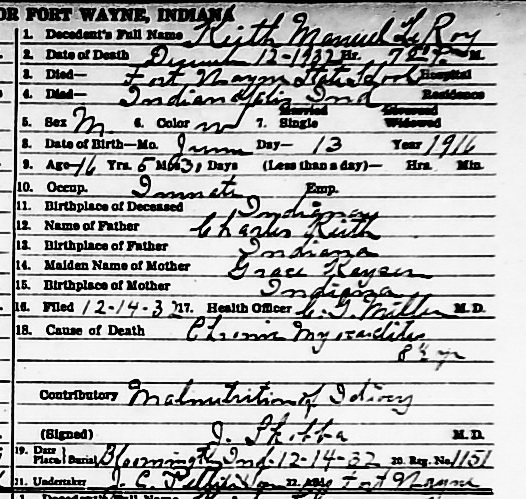 OR FORT WAYNE, INDIANA
1. Decedent's Full Name Keith Manuel LeRoy
2. Date of Death December 12-1932 Hr. M.
3. Died— Fort Wayne State School Hospital
4. Died— Indianapolis Ind Residence
5. Sex M. 6. Color w 7. Married Single Divorced Widowed
8. Date of Birth—Mo. June Day— 13 Year 1916
9. Age 16 Yrs. 5 Mos. Days (Less than a day)— Hrs. Min.
10. Occup. Inmate Emp.
11. Birthplace of Deceased Indiana
12. Name of Father Charles Keith
13. Birthplace of Father Indiana
14. Maiden Name of Mother Grace Kayser
15. Birthplace of Mother Indiana
16. Filed 12-14-32 17. Health Officer Miller M. D.
18. Cause of Death Chronic Myocarditis
8½ yr
Contributory Malnutrition of Idiocy
(Signed) J. M. D.
19. Date Place} Burial Bloomington Ind-12-14-32 20. Reg. No. 1151
21. Undertaker J. C. 22. Fort Wayne
1. Decedent's Full Name